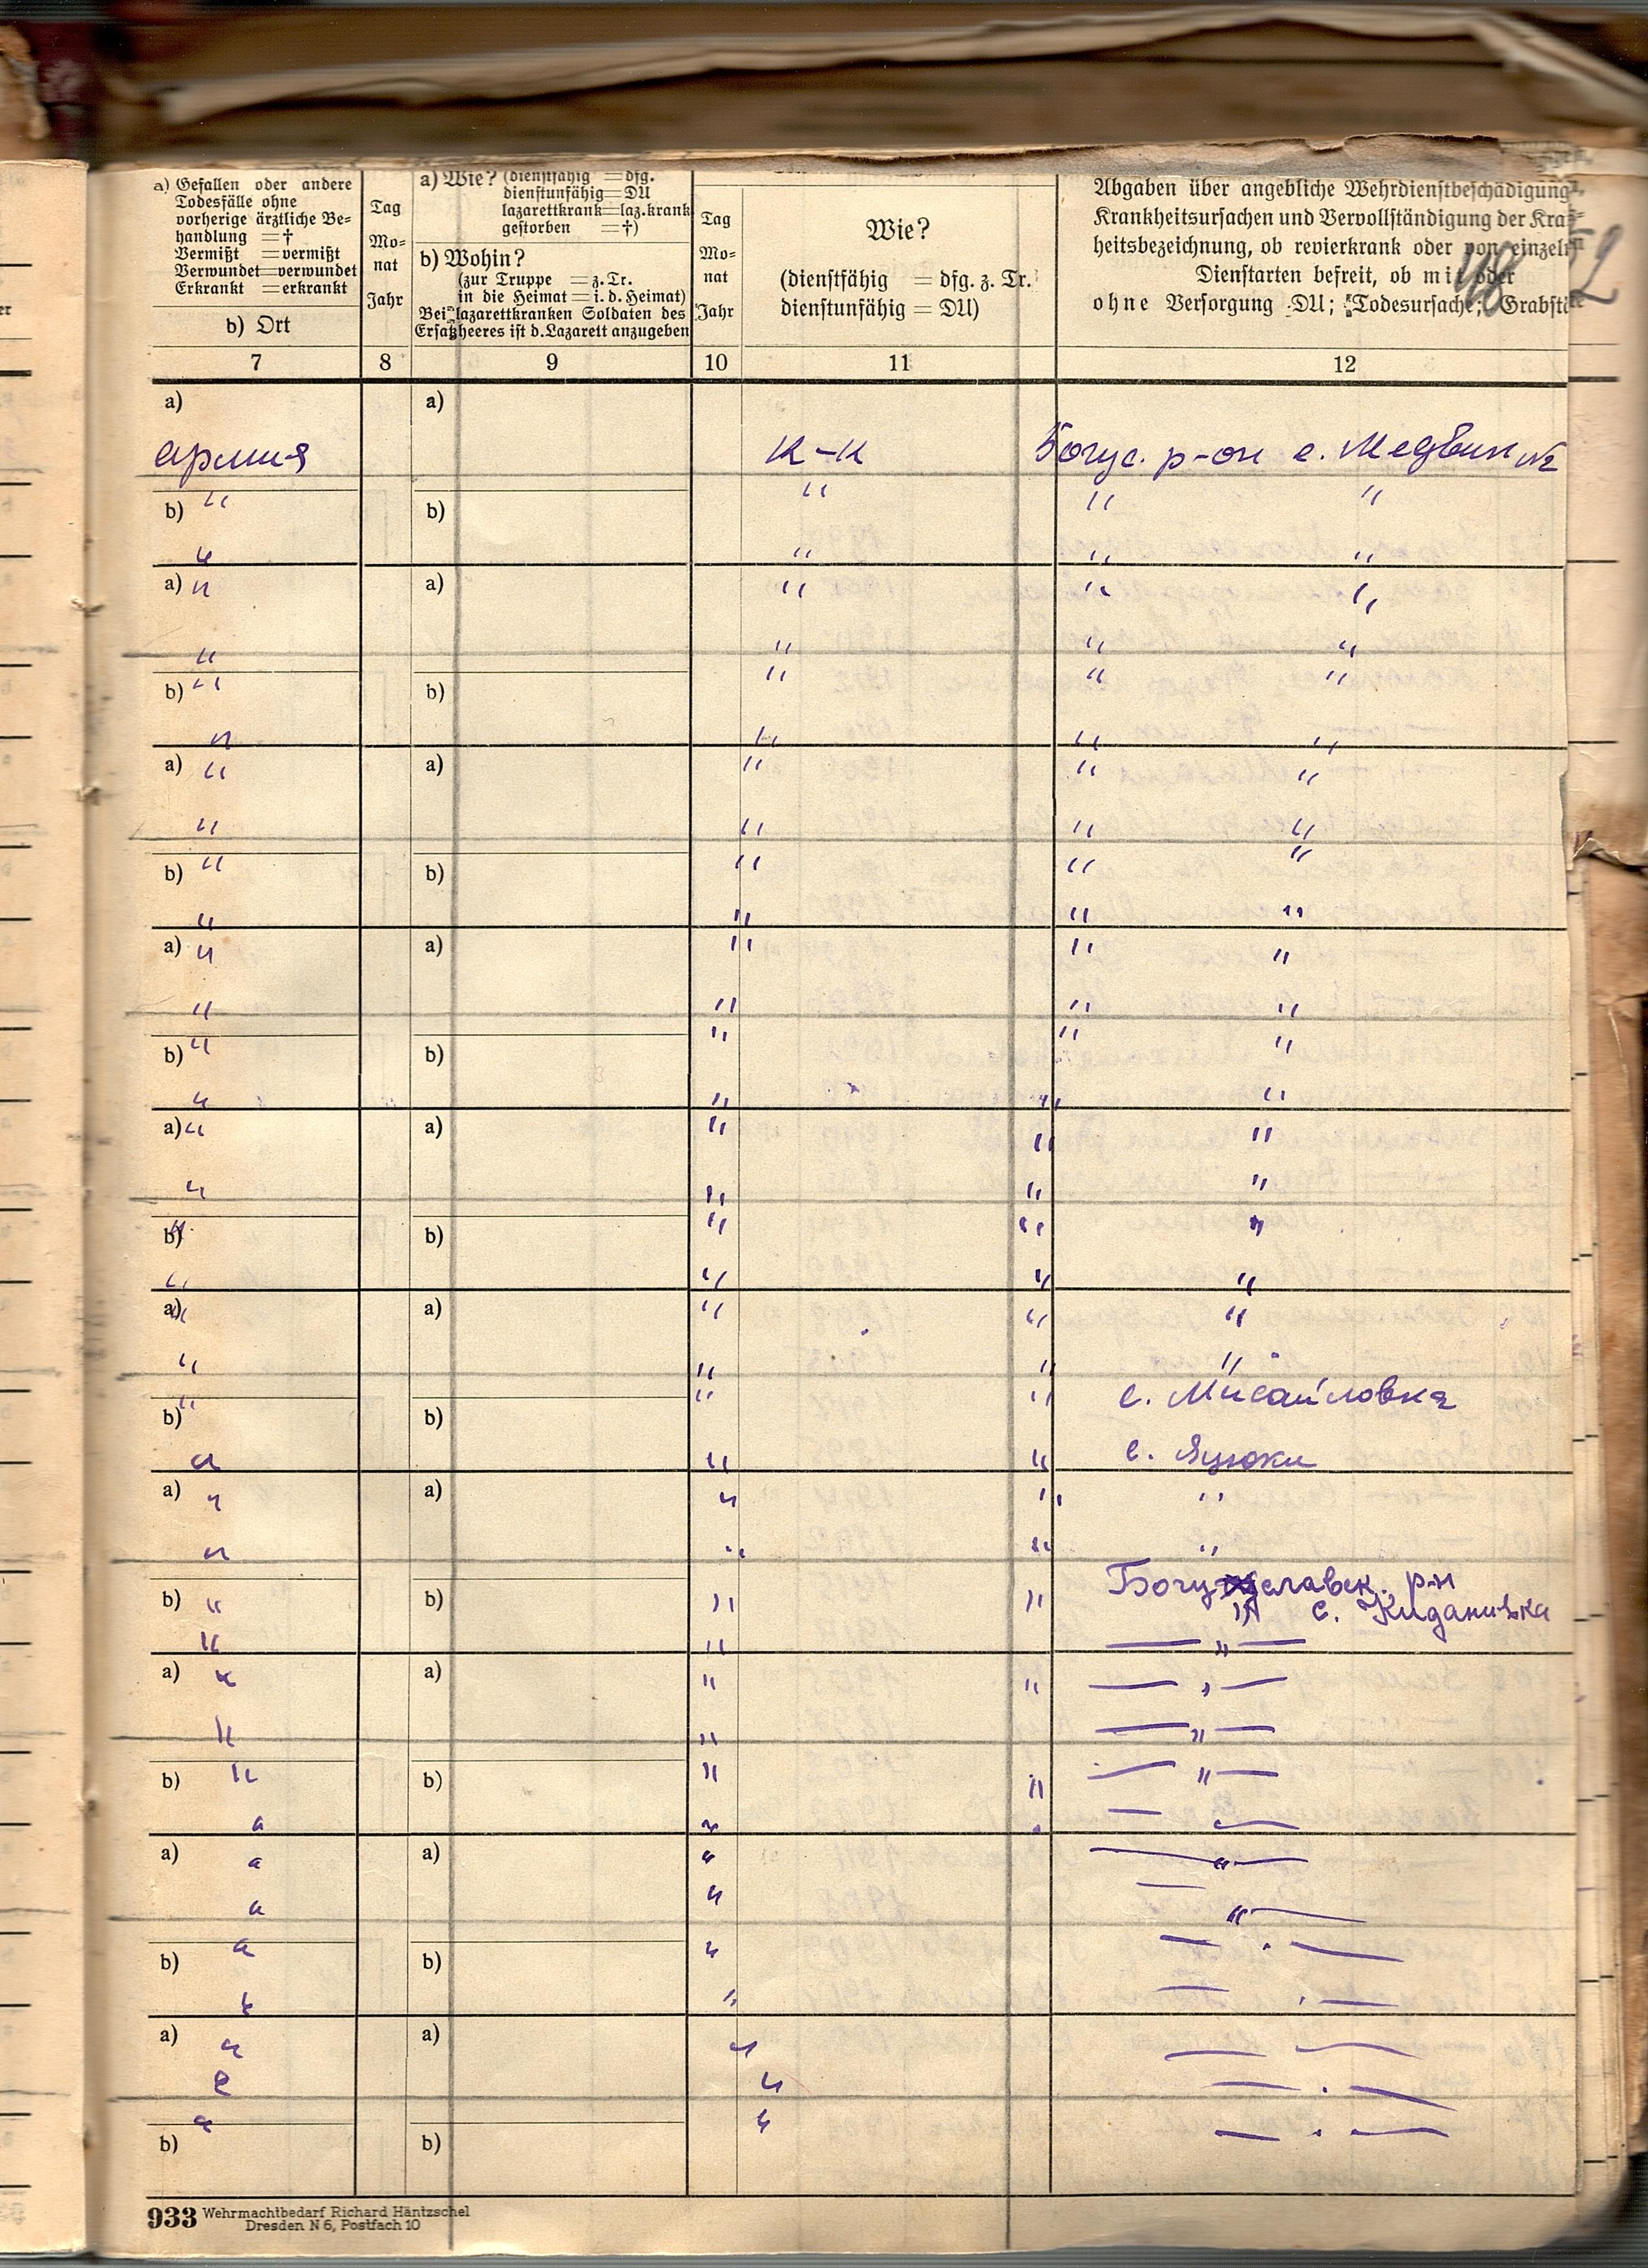 a) Gefallen oder andere
Todesfälle ohne
vorherige ärztliche Be-
handlung = †
Vermißt = vermißt
Verwundet = verwundet
Erkrankt = erkrankt
b) Ort
Tag
Mo-
nat
Jahr
a) Wie? (dienstfähig = dfg.
dienstunfähig = DU
lazarettkrank = laz.krank
gestorben = †)
b) Wohin?
(zur Truppe = z. Tr.
in die Heimat = i. d. Heimat)
Bei lazarettkranken Soldaten des
Ersatzheeres ist d. Lazarett anzugeben
Tag
Mo-
nat
Jahr
Wie?
(dienstfähig = dfg. z. Tr.
dienstunfähig = DU)
Abgaben über angebliche Wehrdienstbeschädigung,
Krankheitsursachen und Vervollständigung der Kra
heitsbezeichnung, ob revierkrank oder von einzeln
Dienstarten befreit, ob mit oder
ohne Versorgung DU; Todesursache; Grabst
7 8 9 10 11 12
a) a)
армия к-к Богус. р-он с. Медвин
" " " "
b) b)
" " " "
a) " a) " " "
" " " "
b) " b) " " "
" " " "
a) " a) " " "
" " " "
b) " b) " " "
" " " "
a) " a) " " "
" " " "
b) " b) " " "
" " " "
a) " a) " " "
" " " "
b) " b) " " "
" " " "
a) " a) " " "
" " " "
b) " b) " " с. Мисайловка
" " " с. Яцюки
a) " a) " " "
" " " "
b) " b) " " Богуславск. р-н
с. Киданивка
" " — " —
a) " a) " " — " —
" " — " —
b) " b) " " — " —
" " " — —
a) " a) " — " —
" " — " —
b) " b) " — " —
" " — " —
a) " a) " — —
" " — " —
" " — " —
b) b)
933 Wehrmachtbedarf Richard Häntzschel
Dresden N 6, Postfach 10